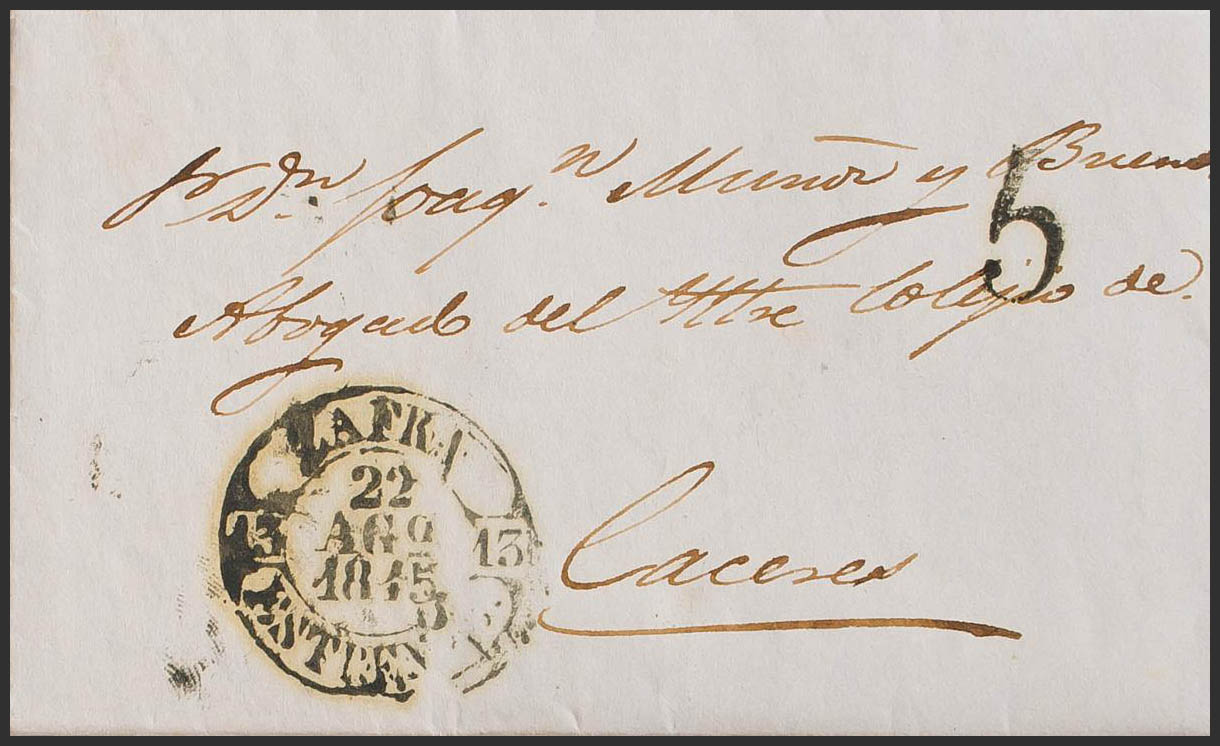 Sr Dn. Joaqn. Muñoz y Bueno
5
Abogado del Iltre Colejio de
Caceres
ZAFRA
22
AGO
1845
13
ESTREM